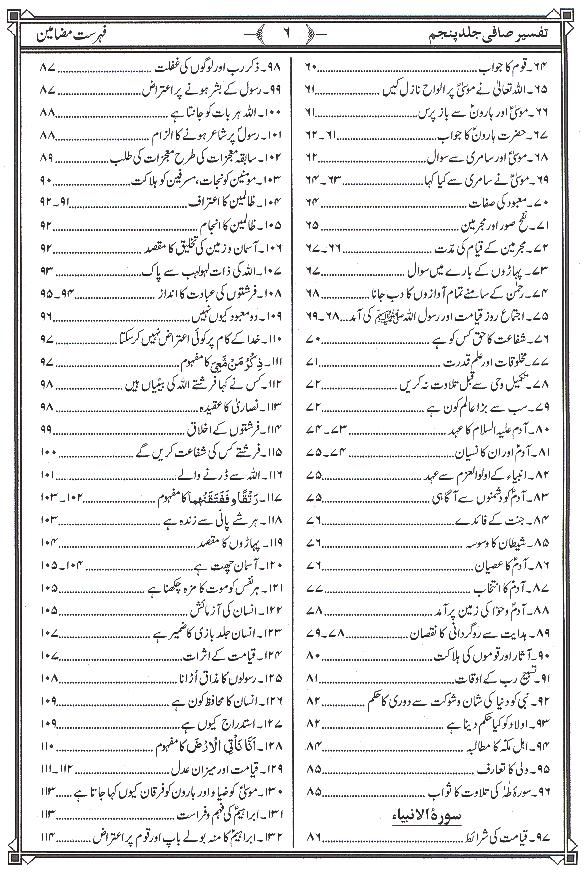 تفسیر صافی جلد پنجم
۶
فہرست مضامین
۶۴۔ قوم کا جواب ۶۰
۶۵۔ اللہ تعالیٰ نے موسیٰؑ پر الواح نازل کیں ۶۱
۶۶۔ موسیٰؑ اور ہارونؑ سے باز پرس ۶۱
۶۷۔ حضرت ہارونؑ کا جواب ۶۱۔۶۲
۶۸۔ موسیٰؑ اور سامری سے سوال ۶۲
۶۹۔ موسیٰؑ نے سامری سے کیا کہا ۶۳۔۶۴
۷۰۔ معبود کی صفات ۶۴
۷۱۔ نفخ صور اور مجرمین ۶۵
۷۲۔ مجرمین کے قیام کی مدّت ۶۶۔۶۷
۷۳۔ پہاڑوں کے بارے میں سوال ۶۷
۷۴۔ رحمٰن کے سامنے تمام آوازوں کا دب جانا ۶۸
۷۵۔ اجتماع روز قیامت اور رسول اللہ ﷺ کی آمد ۶۸۔۶۹
۷۶۔ شفاعت کا حق کس کو ہے ۷۰
۷۷۔ مخلوقات اور علم قدرت ۷۱
۷۸۔ تکمیل وحی سے قبل تلاوت نہ کریں ۷۲
۷۹۔ سب سے بڑا عالم کون ہے ۷۲
۸۰۔ آدم علیہ السلام کا عہد ۷۳۔۷۴
۸۱۔ آدمؑ اور ان کا نسیان ۷۴۔۷۵
۸۲۔ انبیاء کے اولوالعزم سے عہد ۷۵
۸۳۔ آدمؑ کو دشمنوں سے آگاہی ۷۵
۸۴۔ جنت کے فائدے ۷۶
۸۵۔ شیطان کا وسوسہ ۷۶
۸۶۔ آدمؑ کا عصیان ۷۶
۸۷۔ آدمؑ کا انتخاب ۷۷
۸۸۔ آدمؑ و حوّا کی زمین پر آمد ۷۸
۸۹۔ ہدایت سے روگردانی کا نقصان ۷۸۔۷۹
۹۰۔ آثار اور قوموں کی ہلاکت ۸۰
۹۱۔ تسبیح رب کے اوقات ۸۱
۹۲۔ نبی کو دنیا کی شان و شوکت سے دوری کا حکم ۸۲
۹۳۔ اولاد کو کیا حکم دینا ہے ۸۲
۹۴۔ اہل مکّہ کا مطالبہ ۸۴
۹۵۔ ولی کا تعارف ۸۵
۹۶۔ سورۂ طٰہٰ کی تلاوت کا ثواب ۸۵
سورۃ الانبیاء
۹۷۔ قیامت کی شرائط ۸۶
۹۸۔ ذکر رب اور لوگوں کی غفلت ۸۷
۹۹۔ رسول کے بشر ہونے پر اعتراض ۸۷
۱۰۰۔ اللہ ہر بات کو جانتا ہے ۸۸
۱۰۱۔ رسولؐ پر شاعر ہونے کا الزام ۸۸
۱۰۲۔ سابقہ معجزات کی طرح معجزات کی طلب ۸۹
۱۰۳۔ مومنین کو نجات، مسرفین کو ہلاکت ۹۰
۱۰۴۔ ظالمین کا اعتراف ۹۱۔۹۲
۱۰۵۔ ظالمین کا انجام ۹۲
۱۰۶۔ آسمان و زمین کی تخلیق کا مقصد ۹۲
۱۰۷۔ اللہ کی ذات لہو لعب سے پاک ۹۳
۱۰۸۔ فرشتوں کی عبادت کا انداز ۹۴۔۹۵
۱۰۹۔ دو معبود کیوں نہیں ۹۶
۱۱۰۔ خدا کے کام پر کوئی اعتراض نہیں کر سکتا ۹۷
۱۱۱۔ ذِكْرُ مَنْ مَّعِيَ کا مفہوم ۹۷
۱۱۲۔ کس نے کہا فرشتے اللہ کی بیٹیاں ہیں ۹۸
۱۱۳۔ نصاریٰ کا عقیدہ ۹۸
۱۱۴۔ فرشتوں کے اخلاق ۹۹
۱۱۵۔ فرشتے کس کی شفاعت کریں گے ۱۰۰
۱۱۶۔ اللہ سے ڈرنے والے ۱۰۱
۱۱۷۔ رَتْقًا وَفَفَتَقْنٰهُمَا کا مفہوم ۱۰۲۔۱۰۳
۱۱۸۔ ہر شے پانی سے زندہ ہے ۱۰۳
۱۱۹۔ پہاڑوں کا مقصد ۱۰۴
۱۲۰۔ آسمان چھت ہے ۱۰۴۔۱۰۵
۱۲۱۔ ہر نفس کو موت کا مزہ چکھنا ہے ۱۰۵
۱۲۲۔ انسان کی آزمائش ۱۰۵
۱۲۳۔ انسان جلد بازی کا خمیر ہے ۱۰۷
۱۲۴۔ قیامت کے اثرات ۱۰۷
۱۲۵۔ رسولوں کا مذاق اُڑانا ۱۰۸
۱۲۶۔ انسان کا محافظ کون ہے ۱۰۹
۱۲۷۔ استدراج کیوں ہے ۱۰۹
۱۲۸۔ اَنَّا نَاْتِي الْاَرْضَ کا مفہوم ۱۱۰
۱۲۹۔ قیامت اور میزان عدل ۱۱۲۔۱۱۱
۱۳۰۔ موسیٰؑ کو ضیاء اور ہارون کو فرقان کیوں کہا جاتا ہے ۱۱۳
۱۳۱۔ ابراہیمؑ کی فہم و فراست ۱۱۳
۱۳۲۔ ابراہیمؑ کا منہ بولے باپ اور قوم پر اعتراض ۱۱۴